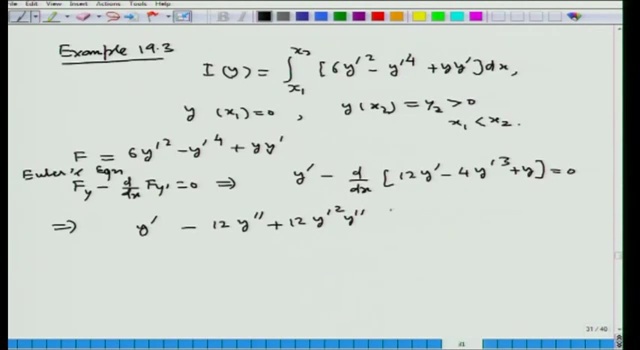 Edit View Insert Actions Tools Help
Example 19.3
I(y) = ∫_{x₁}^{x₂} [6y'² - y'⁴ + yy']dx,
y(x₁)=0, y(x₂) = y₂ > 0
x₁ < x₂.
F = 6y'² - y'⁴ + yy'
Euler's Eqn
F_y - d/dx F_y' = 0 ⇒ y' - d/dx [12y' - 4y'³ + y] = 0
⇒ y' - 12y'' + 12y'²y''
31 / 40
31